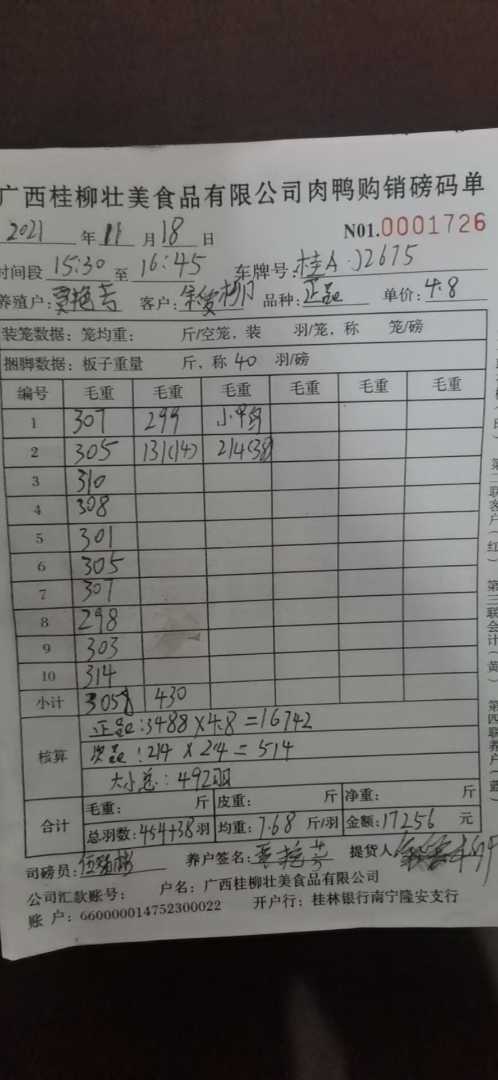 广西桂柳壮美食品有限公司肉鸭购销磅码单
2021 年 11 月 18 日 N01.0001726
时间段 15:30 至 16:45 车牌号: 桂A·J2675
养殖户: 客户: 品种: 正品 单价: 4.8
装笼数据: 笼均重: 斤/空笼, 装 羽/笼, 称 笼/磅
捆脚数据: 板子重量 斤, 称 40 羽/磅
编号 毛重 毛重 毛重 毛重 毛重 毛重
1 307 299 小鸭
2 305 131(14) 214(38)
3 310
4 308
5 301
6 305
7 307
8 298
9 303
10 314
小计 3058 430
核算 正品:3488×4.8=16742
次品:214×2.4=514
大小总:492羽
合计 毛重: 斤 皮重: 斤 净重: 斤
总羽数:454+38羽 均重:7.68 斤/羽 金额:17256 元
司磅员: 养户签名: 提货人
公司汇款账号: 户名: 广西桂柳壮美食品有限公司
账 户: 660000014752300022 开户行: 桂林银行南宁隆安支行
第二联客户(红) 第三联会计(黄) 第四联养户(蓝